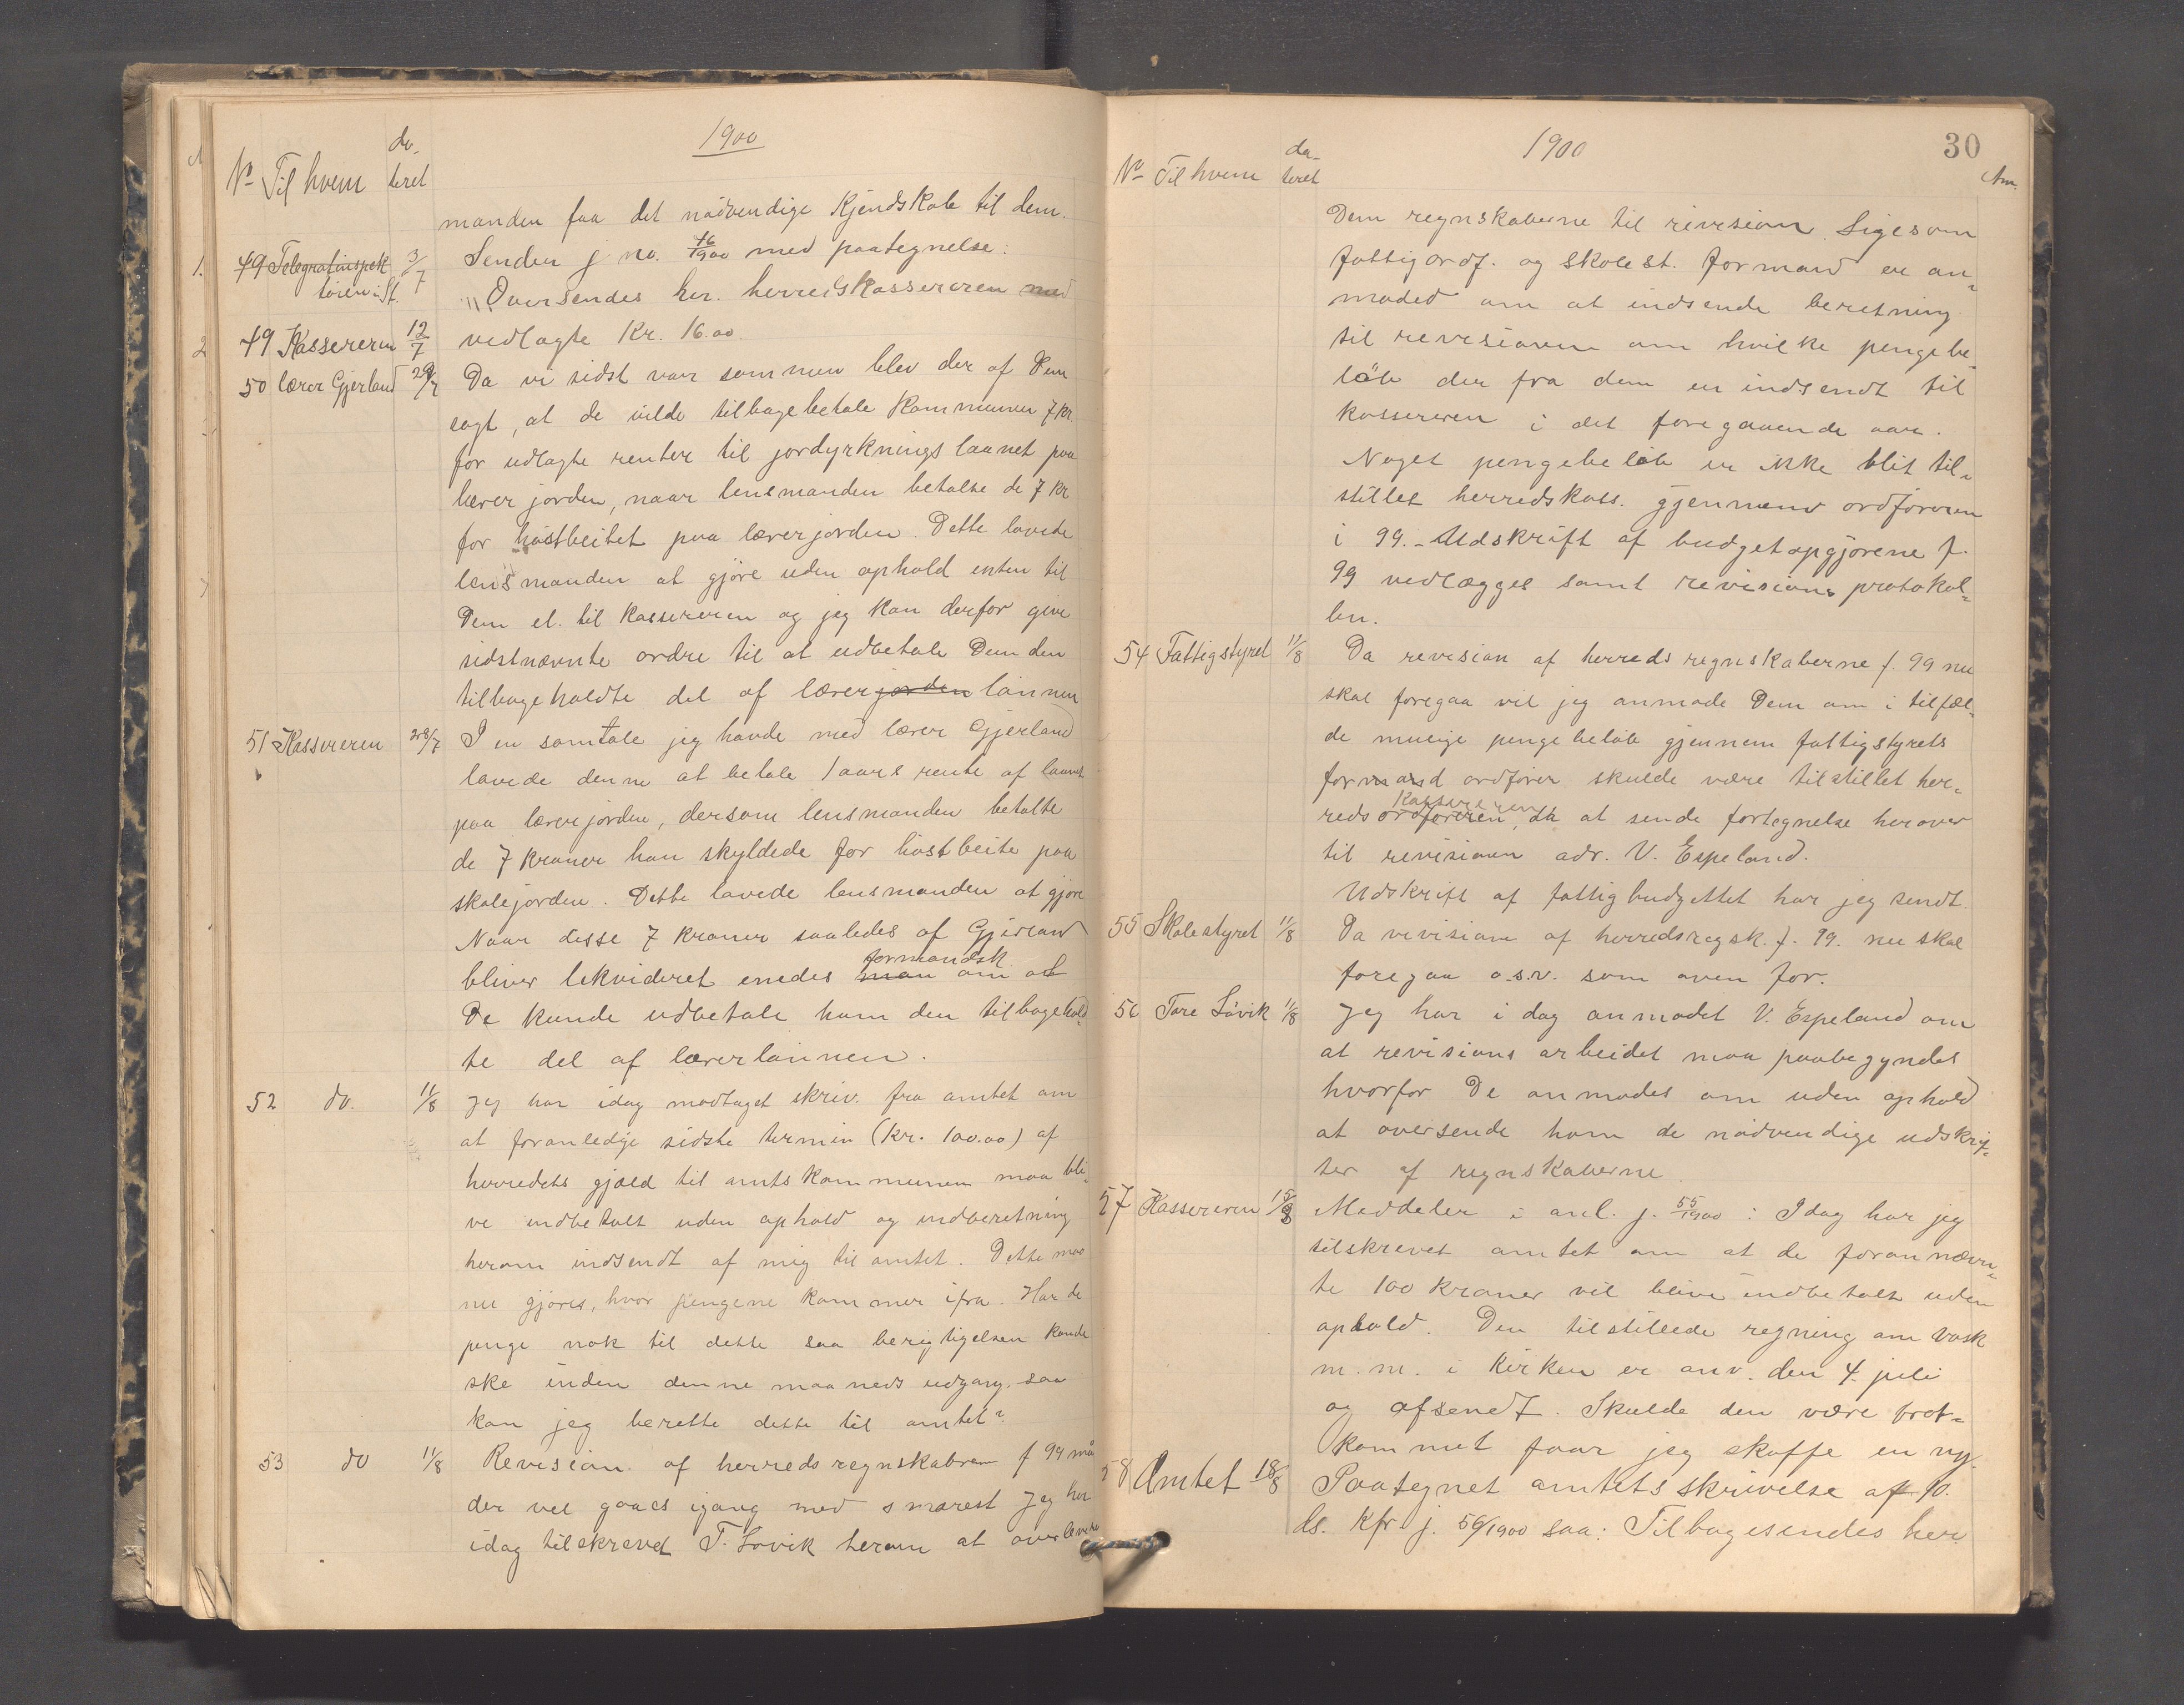 1900
No Til hvem da-
teret
manden faa det nødvendige Kjendskab til dem.
49 Telegrafinspek 3/7 Sender j no. 16/1900 med paategnelse:
tøren i St.
"Oversendes hr. herredskassereren med
49 Kassereren 12/7 vedlagte Kr. 16.00
50 lærer Gjerland 28/7 Da vi sidst var sammen blev der af Dem
sagt, at de vilde tilbagebetale Kommunen 7 kr.
for udlagte renter til jordyrkningslaanet paa
lærerjorden, naar lensmanden betalte de 7 kr
for høstbeitet paa lærerjorden. Dette lovede
lensmanden at gjøre uden ophold enten til
Dem el. til Kassereren og jeg kan derfor give
sidstnævnte ordre til at udbetale Dem den
tilbageholdte del af lærerjorden lønnen
51 Kassereren 28/7 I en samtale jeg havde med lærer Gjerland
lovede denne at betale 1 aars rente af laanet
paa lærerjorden, dersom lensmanden betalte
de 7 kroner han skyldede for høstbeite paa
skolejorden. Dette lovede lensmanden at gjøre
Naar disse 7 kroner saaledes af Gjerland
formandsk.
bliver lekvideret enedes man om at
De kunde udbetale ham den tilbagehold-
te del af lærerlønnen.
52 do. 11/8 Jeg har idag modtaget skriv. fra amtet om
at foranledige sidste termin (kr. 100.00) af
herredets gjæld til amtskommunen maa bli-
ve indbetalt uden ophold og indberetning
herom indsendt af mig til amtet. Dette maa
nu gjøres, hvor pengene kommer ifra. Har de
penge nok til dette saa berigtigelsen kande
ske inden denne maaneds udgang. saa
kan jeg berette dette til amtet?
53 do 11/8 Revision af herredsregnskabren f 99 må
der vel gaaes igang med snarest Jeg har
idag tilskrevet T. Løvik herom at overlevere
1900 30
No Til hvem da-
teret Am.
Dem regnskaberne til revision. Ligesom
fattigordf. og skolest. formand er an-
moded om at indsende beretning
til revisionen om hvilke pengebe-
løb der fra dem er indsendt til
kassereren i det foregaaende aar.
Noget pengebeløb er ikke blit til-
stillet herredskass. gjennem ordføreren
i 99. - Udskrift af budgetopgjørene f.
99 vedlægges samt revisions protokol-
len.
54 Fattigstyret 11/8 Da revision af herreds regnskaberne f. 99 nu
skal foregaa vil jeg anmode Dem om i tilfæl-
de mulige pengebeløb gjennem fattigstyrets
formand ordfører skulde være tilstillet her-
Kassereren
redsordføreren, da at sende fortegnelse herover
til revisionen adr. V. Espeland.
Udskrift af fattigbudgettet har jeg sendt.
55 Skolestyret 11/8 Da revisionen af herredsregsk. f. 99. nu skal
foregaa o.s.v. som oven for.
56 Tore Løvik 11/8 Jeg har i dag anmodet V. Espeland om
at revisions arbeidet maa paabegyndes
hvorfor De anmodes om uden ophold
at oversende ham de nødvendige udskrif-
ter af regnskaberne
57 Kassereren 15/8 Meddeler i anl. j. 55/1900 : Idag har jeg
tilskrevet amtet om at de forannævn-
te 100 kroner vil blive indbetalt uden
ophold. Den tilstillede regning om vask
m. m. i Kirken er anv. den 4. juli
og afsendt. Skulde den være bort-
kommet faar jeg skaffe en ny.
58 Amtet 18/8 Paategnet amtets skrivelse af 10.
ds. Kfr j. 56/1900 saa: Tilbagesendes her